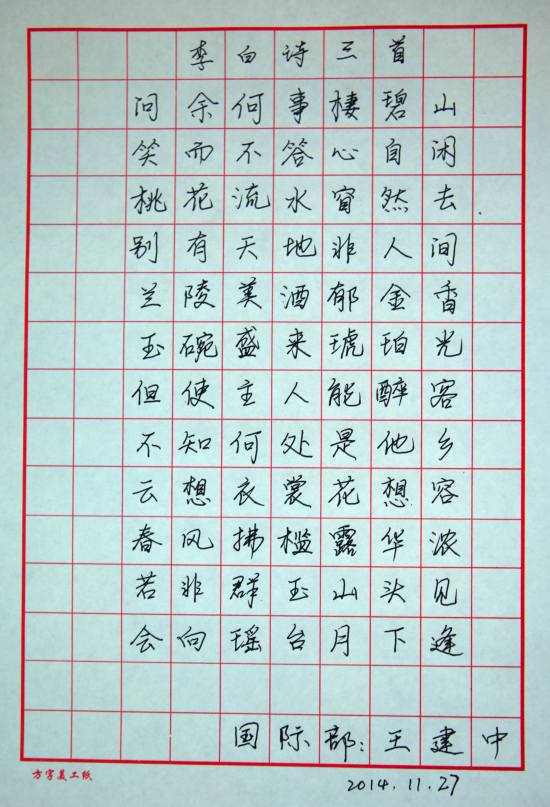 李白诗三首
问余何事栖碧山
笑而不答心自闲
桃花流水窅然去
别有天地非人间
兰陵美酒郁金香
玉碗盛来琥珀光
但使主人能醉客
不知何处是他乡
云想衣裳花想容
春风拂槛露华浓
若非群玉山头见
会向瑶台月下逢
国际部:王建中
方字美工纸
2014.11.27